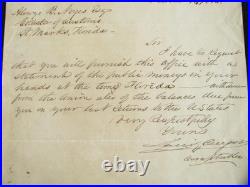 Alonzo B. Noyes Esq
Collector of Customs
St Marks, Florida
Sir
I have to request
that you will furnish this office with a
statement of the public moneys in your
hands at the time Florida withdrew
from the Union also of the balances due from
you on your last returns to the U States
Very Respectfully
Yours
Lewis Cruger
Comptroller